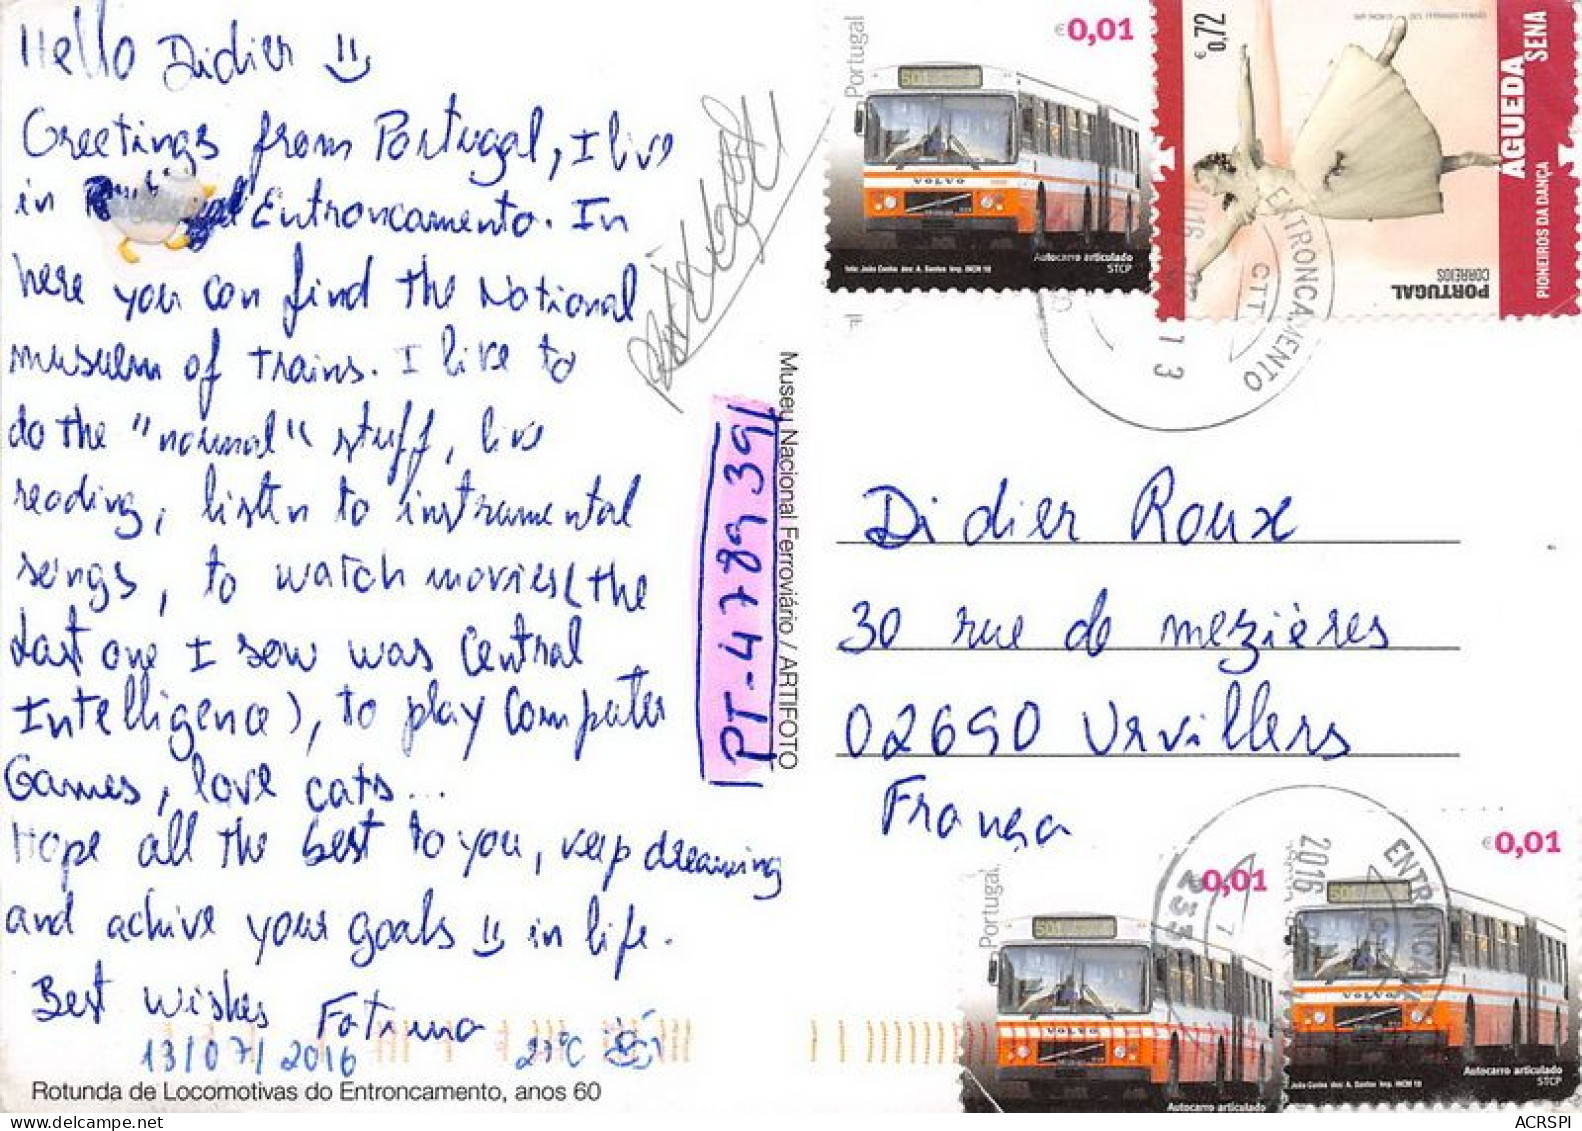 Hello Didier
Greetings from Portugal, I live
in Entroncamento. In
here you can find the National
museum of trains. I like to
do the "normal" stuff, like
reading, listen to instrumental
songs, to watch movies (the
last one I saw was Central
Intelligence), to play Computer
Games, love cats...
Hope all the best to you, keep dreaming
and achive your goals in life.
Best wishes Fatima
13/07/2016 27°C
Rotunda de Locomotivas do Entroncamento, anos 60
PT-478939
Museu Nacional Ferroviário / ARTIFOTO
Portugal
€0,01
501
VOLVO
foto: João Cunha des: A. Santos Imp. INCM 10
Autocarro articulado
STCP
€0,72
AGUEDA
SENA
PIONEIROS DA DANÇA
PORTUGAL
CORREIOS
ENTRONCAMENTO
CTT
2016
13
Didier Roux
30 rue de mezières
02690 Urvillers
França
Portugal
0,01
501
VOLVO
Autocarro articulado
2016
ENTRONCAM
€0,01
501
VOLVO
João Cunha des: A. Santos Imp. INCM 10
Autocarro articulado
STCP
ACRSPI